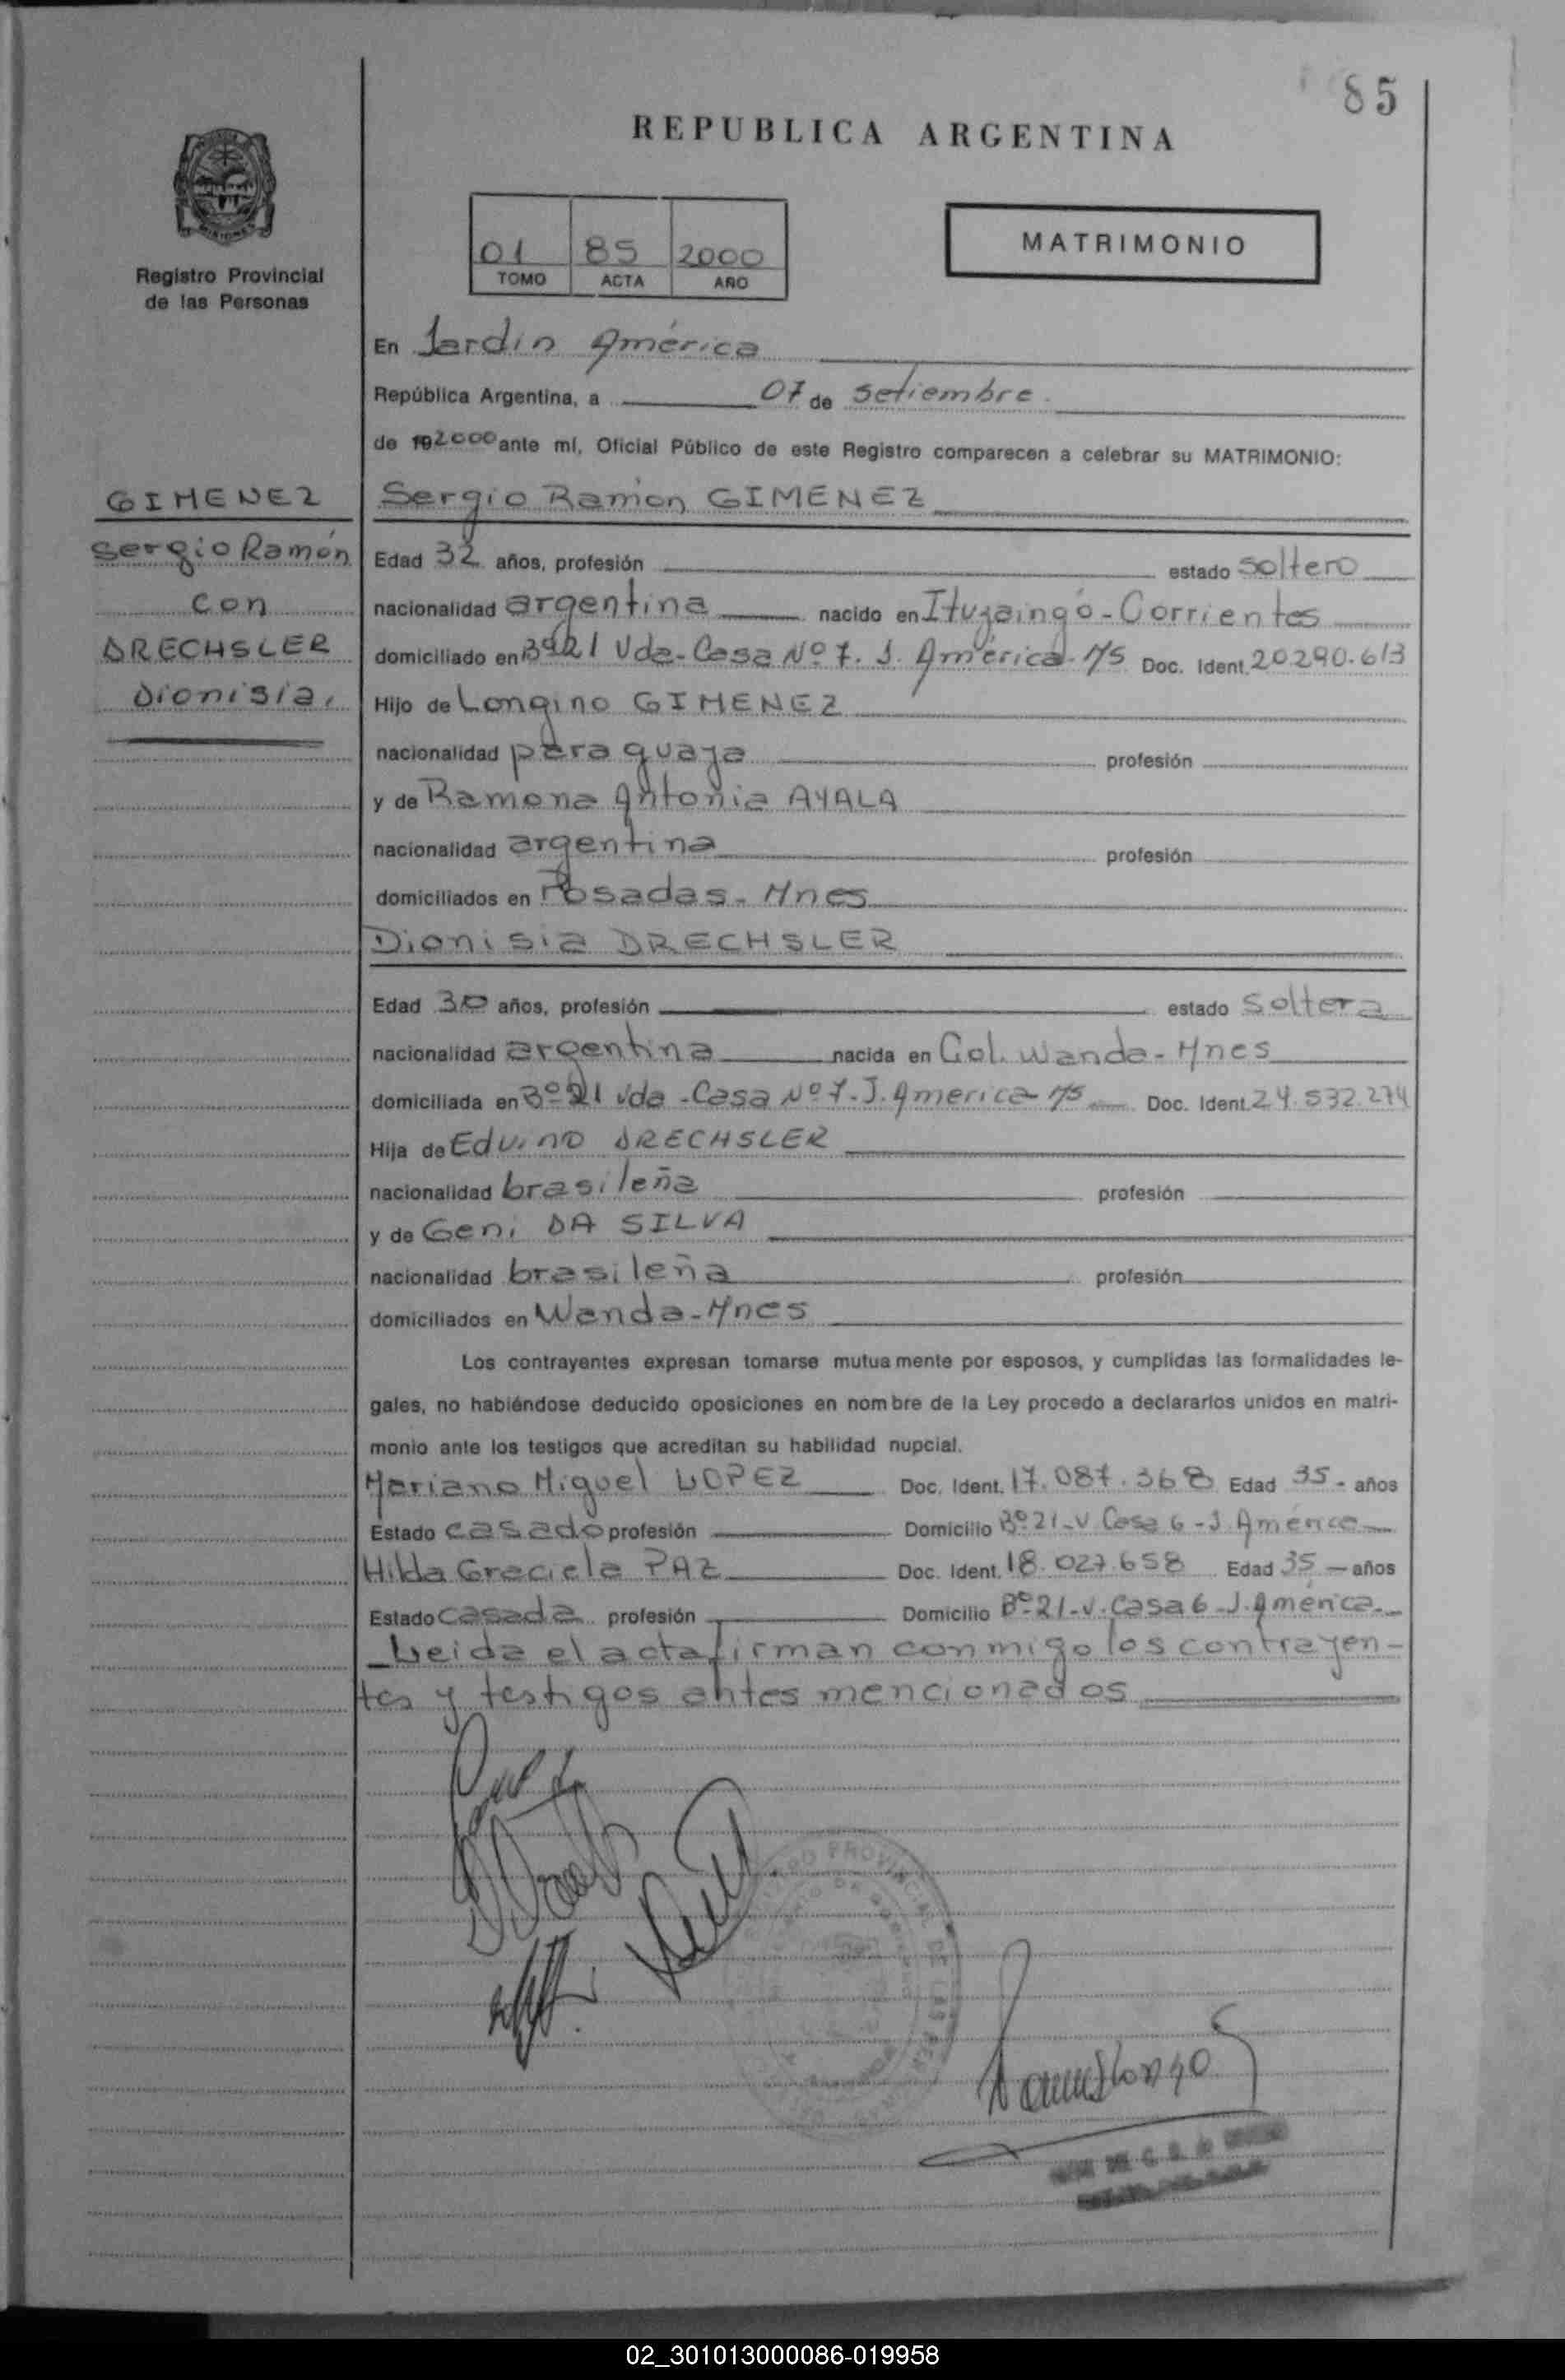 85
REPUBLICA ARGENTINA
Registro Provincial
de las Personas
01 85 2000
TOMO ACTA AÑO
MATRIMONIO
En Jardin América
República Argentina, a 07 de setiembre
de 192000 ante mí, Oficial Público de este Registro comparecen a celebrar su MATRIMONIO:
GIMENEZ
Sergio Ramón
con
DRECHSLER
Dionisia,
Sergio Ramón GIMENEZ
Edad 32 años, profesión estado soltero
nacionalidad argentina nacido en Ituzaingó - Corrientes
domiciliado en Bº 21 Vda - Casa Nº 7. J. América - Ms Doc. Ident. 20.290.613
Hijo de Longino GIMENEZ
nacionalidad paraguaya profesión
y de Ramona Antonia AYALA
nacionalidad argentina profesión
domiciliados en Posadas - Mnes
Dionisia DRECHSLER
Edad 30 años, profesión estado soltera
nacionalidad argentina nacida en Col. Wanda - Mnes
domiciliada en Bº 21 Vda - Casa Nº 7 - J. America - Ms Doc. Ident. 24.532.274
Hija de Eduino DRECHSLER
nacionalidad brasileña profesión
y de Geni DA SILVA
nacionalidad brasileña profesión
domiciliados en Wanda - Mnes
Los contrayentes expresan tomarse mutuamente por esposos, y cumplidas las formalidades le-
gales, no habiéndose deducido oposiciones en nombre de la Ley procedo a declararlos unidos en matri-
monio ante los testigos que acreditan su habilidad nupcial.
Mariano Miguel LOPEZ Doc. Ident. 17.087.368 Edad 35 - años
Estado casado profesión Domicilio Bº 21 - V Casa 6 - J. América
Hilda Graciela PAZ Doc. Ident. 18.027.658 Edad 35 - años
Estado casada profesión Domicilio Bº 21 - V. Casa 6 - J. América
Leida el acta firman conmigo los contrayen-
tes y testigos antes mencionados
02_301013000086-019958